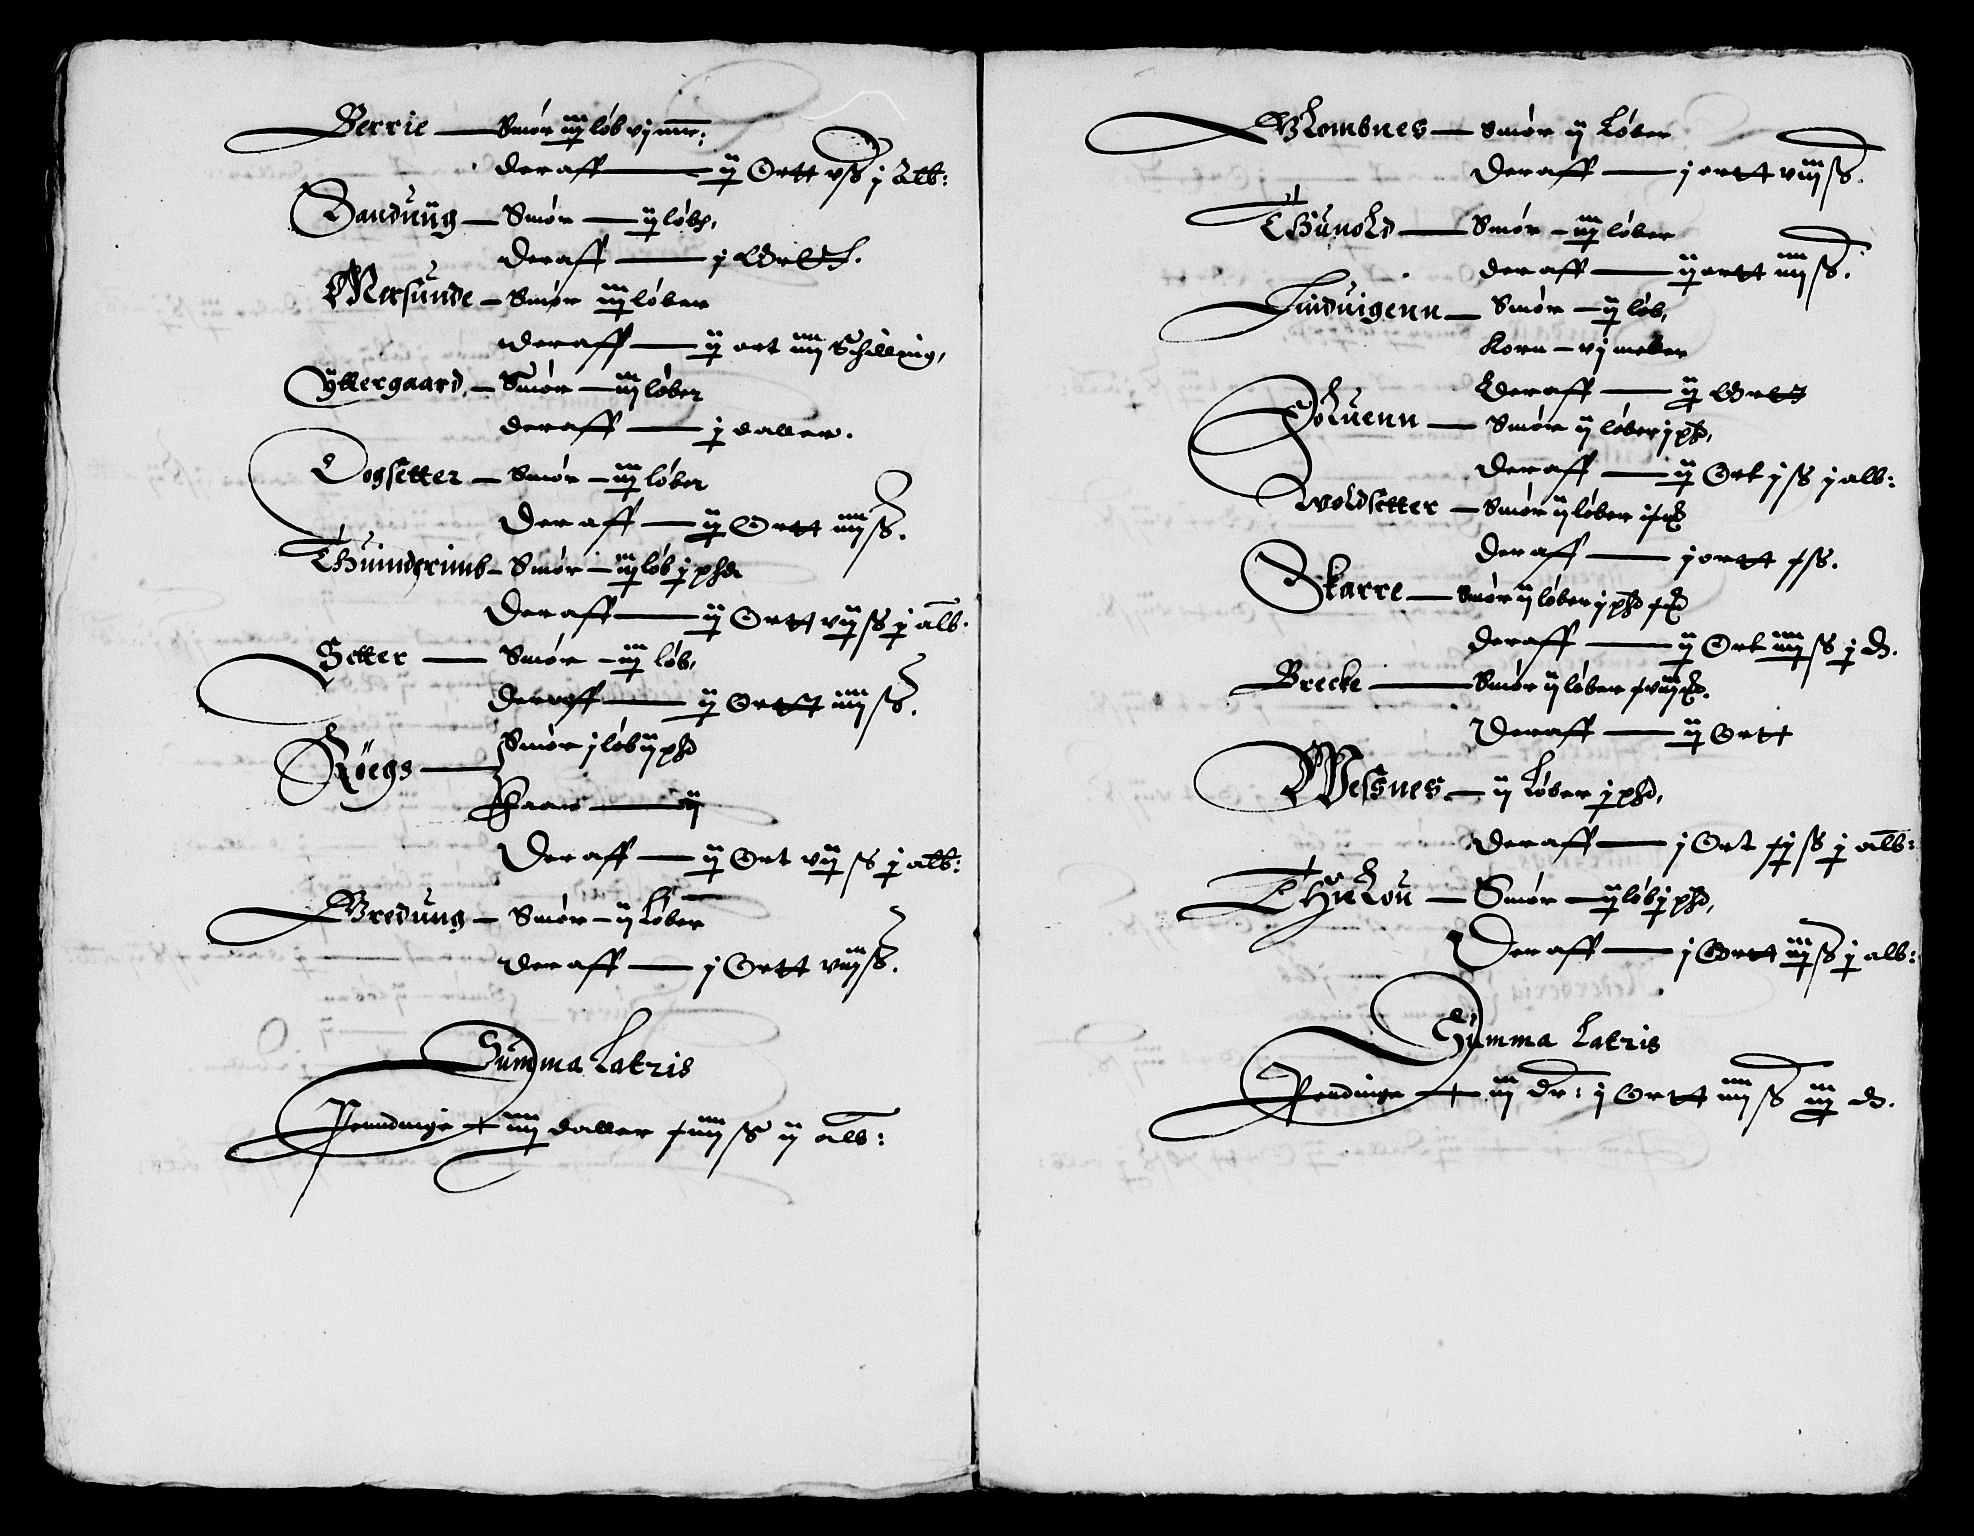 Berrie — Smór iiij lób vj mrc:
deraff — ij Ortt v ß j alb:
Sanduiig — Smór — ij lób,
deraff — j Ortt.
Mersunde — Smór iiij lóber
deraff — ij ort iiij Schilling,
Yttergaard — Smór — iij lóber
deraff — j daller.
Togsetter — Smór — iiij lóber
Deraff — ij Ortt iiij ß.
Thuinderimb — Smór — iij lób j phd
Deraff — ij Ortt vij ß j alb.
Setter — Smór — iij lób,
deraff — ij Ortt iiij ß.
Röegs — Smór j lób ij phd
— ij
Deraff — ij Ort vij ß j alb:
Bredung — Smór — ij Lóber
deraff — j Ortt viij ß.
Summa Latris
Penndinge — iiij daller ß ij alb:
Blombnes — Smór ij Lóber
deraff — j ortt viij ß.
Thunold — Smór — iij lóber
deraff — ij ortt iiij ß.
Linduigenn — Smór — ij lób,
Korn — vj meller
Deraff — ij Ortt
Toluenn — Smór ij lóber j phd,
deraff — ij Ort j ß j alb:
Woldsetter — Smór ij lóber
deraff — j ortt ß.
Skarre — Smór ij lóber j phd
deraff — ij Ort iiij ß j d.
Brecke — Smór ij lóber
Deraff — ij Ortt
Messnes — ij Lóber j phd,
deraff — j Ort ß j alb:
Thielou — Smór — ij lób j phd,
Deraff — j Ortt iij ß j alb:
Summa Latris
Pendinge — iij dr: j Ortt iiij ß iij d.